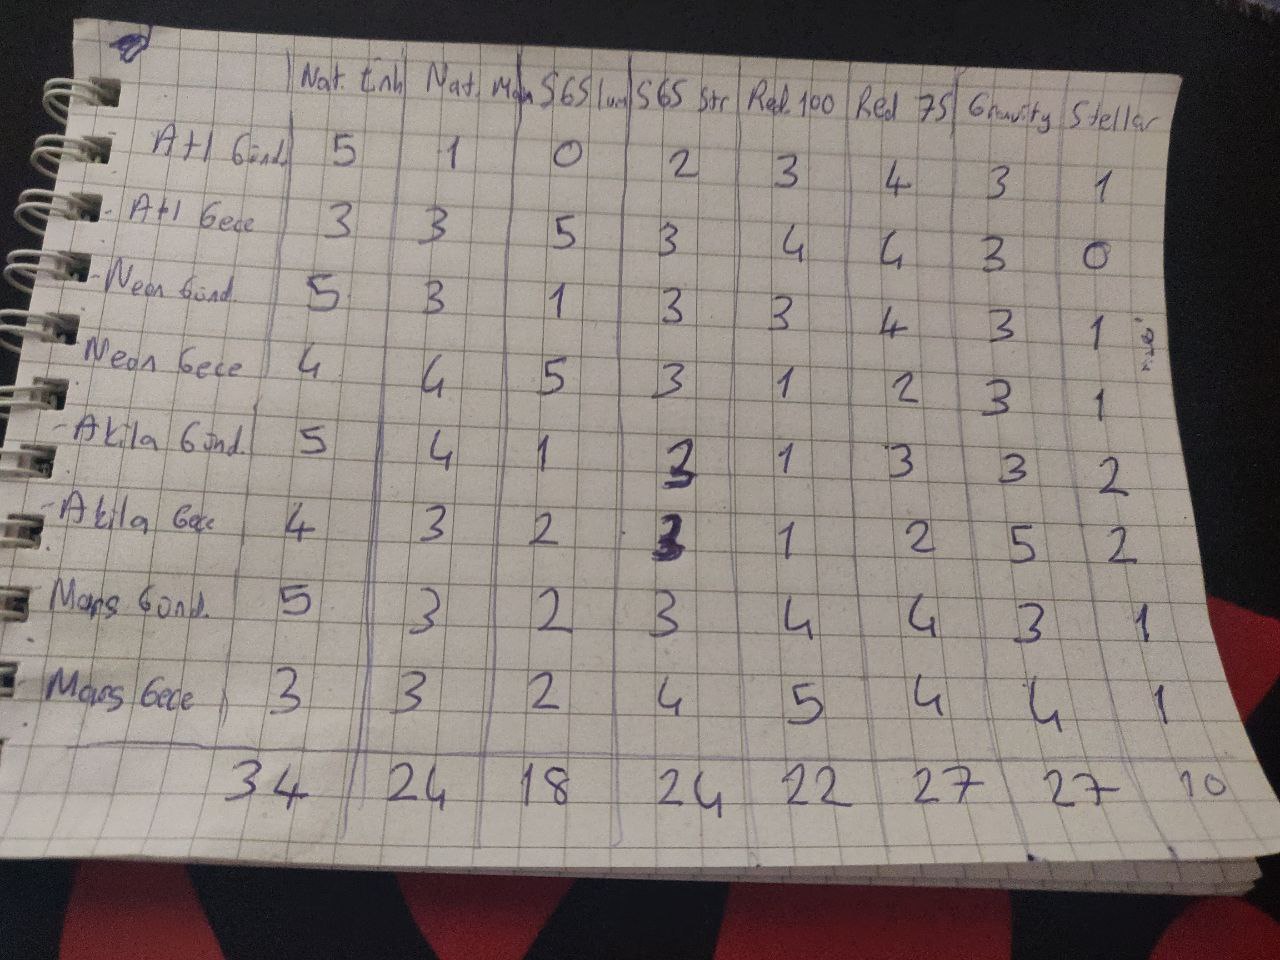 Nat. Enh Nat. Mqn S65 lum S65 Str Red. 100 Red 75 Gravity Stellar
Atl Günd. 5 1 0 2 3 4 3 1
- Atl Gece 3 3 5 3 4 4 3 0
- Neon Günd. 5 3 1 3 3 4 3 1
Neon Gece 4 4 5 3 1 2 3 1
- Akila Günd. 5 4 1 3 1 3 3 2
- Akila Gece 4 3 2 3 1 2 5 2
Mars Günd. 5 3 2 3 4 4 3 1
Mars Gece 3 3 2 4 5 4 4 1
34 24 18 24 22 27 27 10